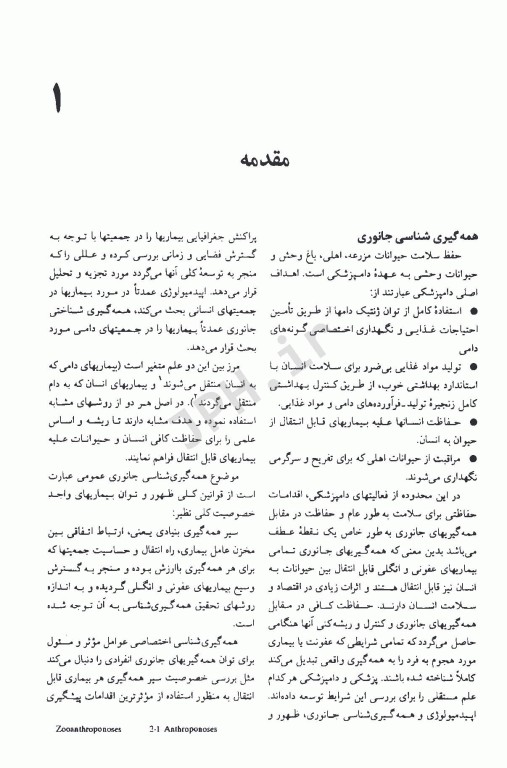 ۱
مقدمه
همه‌گیری شناسی جانوری
حفظ سلامت حیوانات مزرعه، اهلی، باغ وحش و
حیوانات وحشی به عهدهٔ دامپزشکی است. اهداف
اصلی دامپزشکی عبارتند از:
● استفادهٔ کامل از توان ژنتیک دامها از طریق تأمین
احتیاجات غذایی و نگهداری اختصاصی گونه‌های
دامی
● تولید مواد غذایی بی‌ضرر برای سلامت انسان با
استاندارد بهداشتی خوب، از طریق کنترل بهداشتی
کامل زنجیرهٔ تولید ـ فرآورده‌های دامی و مواد غذایی.
● حفاظت انسانها علیه بیماریهای قابل انتقال از
حیوان به انسان.
● مراقبت از حیوانات اهلی که برای تفریح و سرگرمی
نگهداری می‌شوند.
در این محدوده از فعالیتهای دامپزشکی، اقدامات
حفاظتی برای سلامت به طور عام و حفاظت در مقابل
همه‌گیریهای جانوری به طور خاص یک نقطهٔ عطف
می‌باشد بدین معنی که همه‌گیریهای جانوری تمامی
بیماریهای عفونی و انگلی قابل انتقال بین حیوانات به
انسان نیز قابل انتقال هستند و اثرات زیادی در اقتصاد و
سلامت انسان دارند. حفاظت کافی در مقابل
همه‌گیریهای جانوری و کنترل و ریشه‌کنی آنها هنگامی
حاصل می‌گردد که تمامی شرایطی که عفونت یا بیماری
مورد هجوم به فرد را به همه‌گیری واقعی تبدیل می‌کند
کاملاً شناخته شده باشند. پزشکی و دامپزشکی هر کدام
علم مستقلی را برای بررسی این شرایط توسعه داده‌اند.
اپیدمیولوژی و همه‌گیری‌شناسی جانوری، ظهور و
پراکنش جغرافیایی بیماریها را در جمعیتها با توجه به
گسترش فضایی و زمانی بررسی کرده و عللی را که
منجر به توسعهٔ کلی آنها می‌گردد مورد تجزیه و تحلیل
قرار می‌دهد. اپیدمیولوژی عمدتاً در مورد بیماریها در
جمعیتهای انسانی بحث می‌کند، همه‌گیری شناختی
جانوری عمدتاً بیماریها را در جمعیتهای دامی مورد
بحث قرار می‌دهد.
مرز بین این دو علم متغیر است (بیماریهای دامی که
به انسان منتقل می‌شوند۱ و بیماریهای انسان که به دام
منتقل می‌گردند۲). در اصل هر دو از روشهای مشابه
استفاده نموده و هدف مشابه دارند تا ریشه و اساس
علمی را برای حفاظت کافی انسان و حیوانات علیه
بیماریهای قابل انتقال فراهم نمایند.
موضوع همه‌گیری‌شناسی جانوری عمومی عبارت
است از قوانین کلی ظهور و توان بیماریهای واجد
خصوصیت کلی نظیر:
سیر همه‌گیری بنیادی یعنی، ارتباط اتفاقی بین
مخزن عامل بیماری، راه انتقال و حساسیت جمعیتها که
برای هر همه‌گیری باارزش بوده و منجر به گسترش
وسیع بیماریهای عفونی و انگلی گردیده و به اندازه
روشهای تحقیق همه‌گیری‌شناسی به آن توجه شده
است.
همه‌گیری‌شناسی اختصاصی عوامل مؤثر و مسئول
برای توان همه‌گیریهای جانوری انفرادی را دنبال می‌کند
مثل بررسی خصوصیت سیر همه‌گیری هر بیماری قابل
انتقال به منظور استفاده از مؤثرترین اقدامات پیشگیری
Zooanthroponoses 2-1 Anthroponoses
JPH.ir